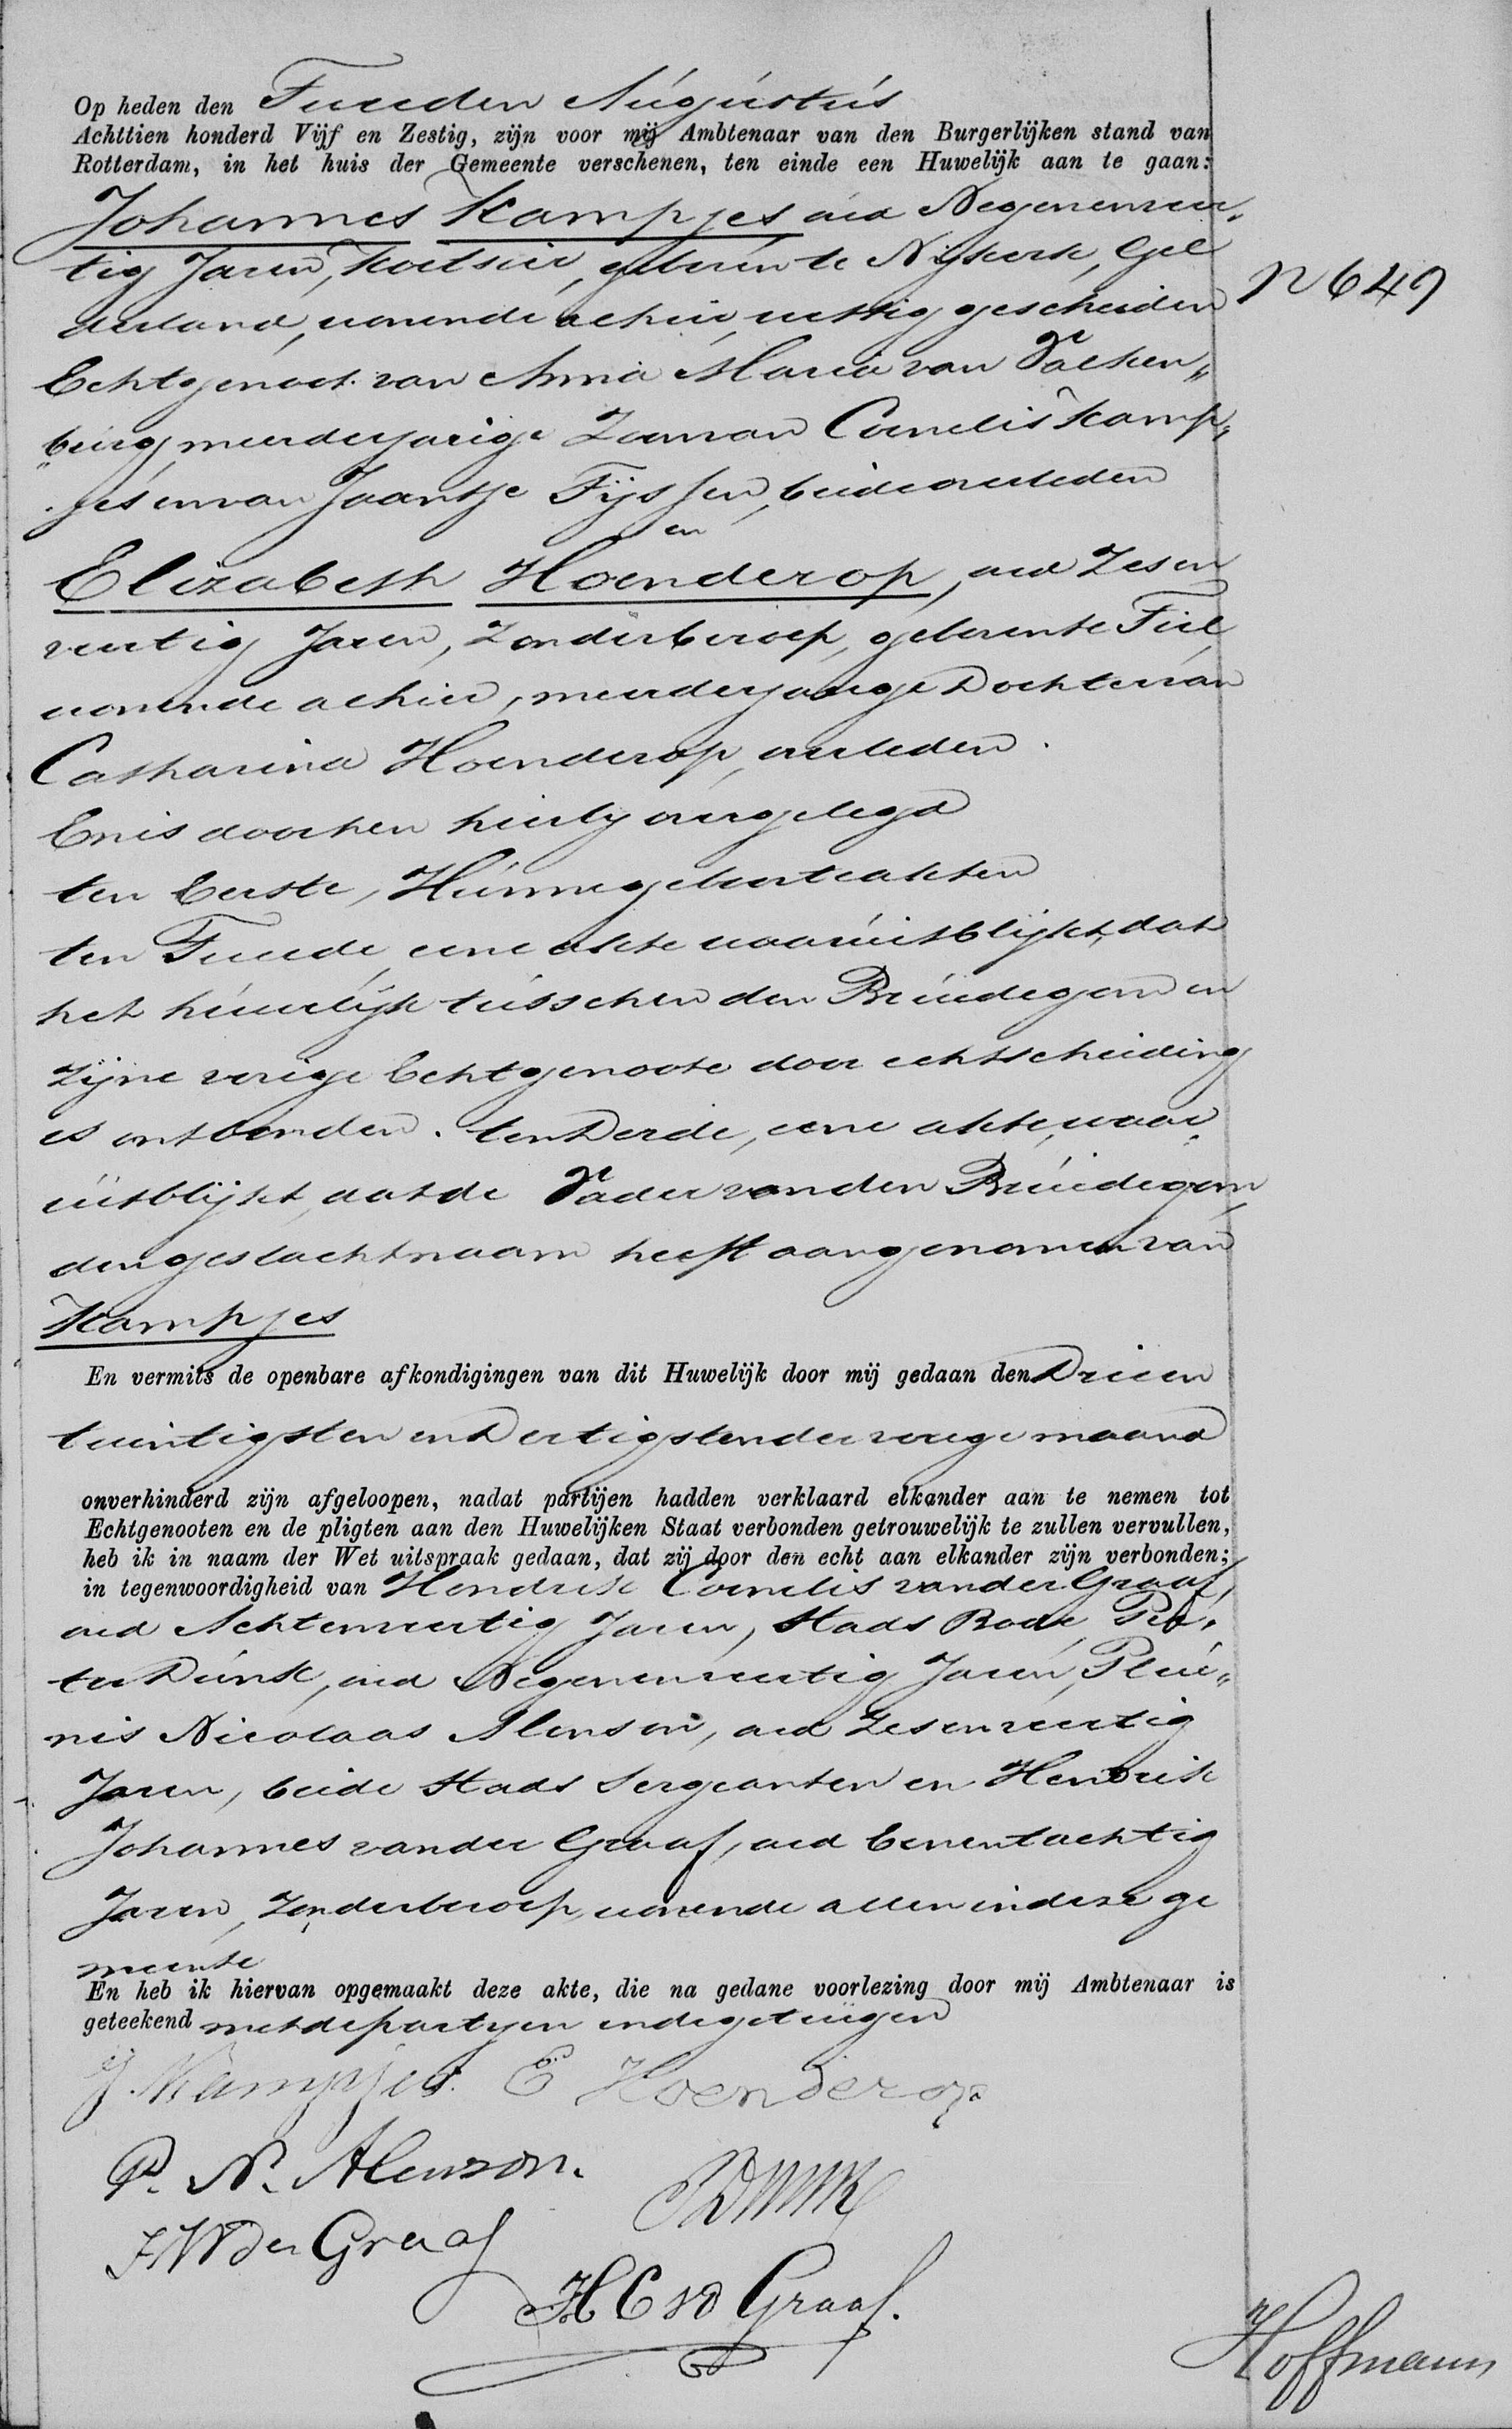 Op heden den Tweeden Augustus
Achttien honderd Vijf en Zestig, zijn voor mij Ambtenaar van den Burgerlijken stand van
Rotterdam, in het huis der Gemeente verschenen, ten einde een Huwelijk aan te gaan:
Johannes Kampjes oud Negenenveer„
tig Jaren, Koetsier, geboren te Nijkerk, Gel
derland, wonende alhier, wettig gescheiden
N 649
Echtgenoot van Anna Maria van Valken„
„burg, meerderjarige Zoon van Cornelis Kamp„
jes en van Jaantje Tijssen, beide overleden
en
Elizabeth Hoenderop, oud Zesen
veertig Jaren, Zonder beroep, geboren te Tiel,
wonende alhier, meerderjarige Dochter van
Catharina Hoenderop, overleden.
En is door hen hierby overgelegd
ten Eerste, Hunne geboorteakten
ten Tweede, eene akte waaruit blijkt, dat
het huwelijk tusschen den Bruidegom en
zijne vorige Echtgenoote door echtscheiding
is ontbonden. ten Derde, eene akte, waar
uit blijkt, dat de Vader van den Bruidegom,
den geslachtnaam heeft aangenomen van
Kampjes
En vermits de openbare afkondigingen van dit Huwelijk door mij gedaan den Drieen
twintigsten en Dertigsten der vorige maand
onverhinderd zijn afgeloopen, nadat partijen hadden verklaard elkander aan te nemen tot
Echtgenooten en de pligten aan den Huwelijken Staat verbonden getrouwelijk te zullen vervullen,
heb ik in naam der Wet uitspraak gedaan, dat zij door den echt aan elkander zijn verbonden;
in tegenwoordigheid van Hendrik Cornelis van der Graaf,
oud Achtenveertig Jaren, Stads Bode, Pie„
ter Dunk, oud Negenenveertig Jaren, Pleu„
nis Nicolaas Alenson, oud Zesenveertig
Jaren, beide Stads Sergeanten en Hendrik
Johannes van der Graaf, oud Eenentachtig
Jaren, Zonder beroep, wonende allen in deze ge
meente
En heb ik hiervan opgemaakt deze akte, die na gedane voorlezing door mij Ambtenaar is
geteekend met de partyen en de getuigen
J. Kampjes. E Hoenderop
P. N. Alenson.
PDunk
HC vd Graaf.
Hoffmann